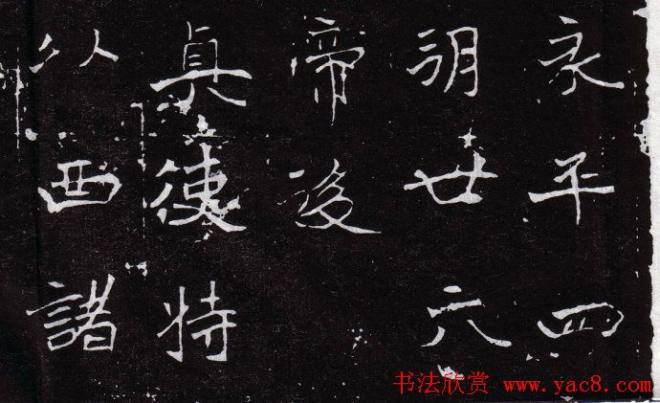 永平四
朔廿六
帝後
真使持
以西諸
书法欣赏 www.yac8.com